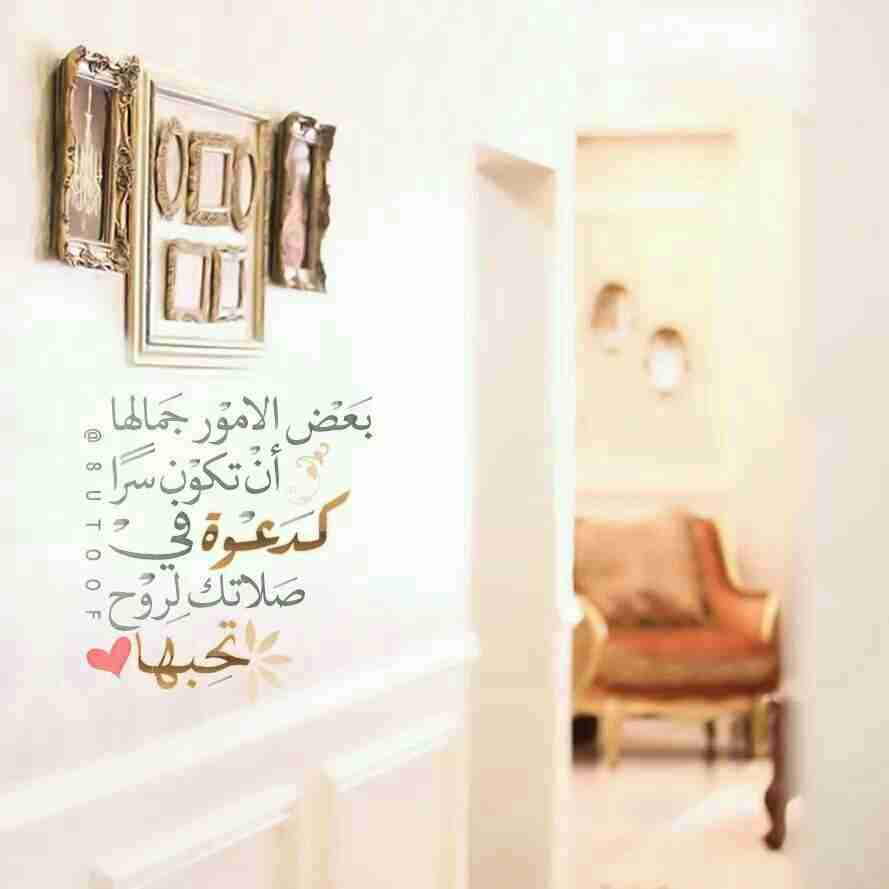 بَعَْض الاموْر جَمالها
أنْ تكوْن سرًا
كَدَعوْة في
صَلاتك لِروْح
تحِبها
@8UTOOF